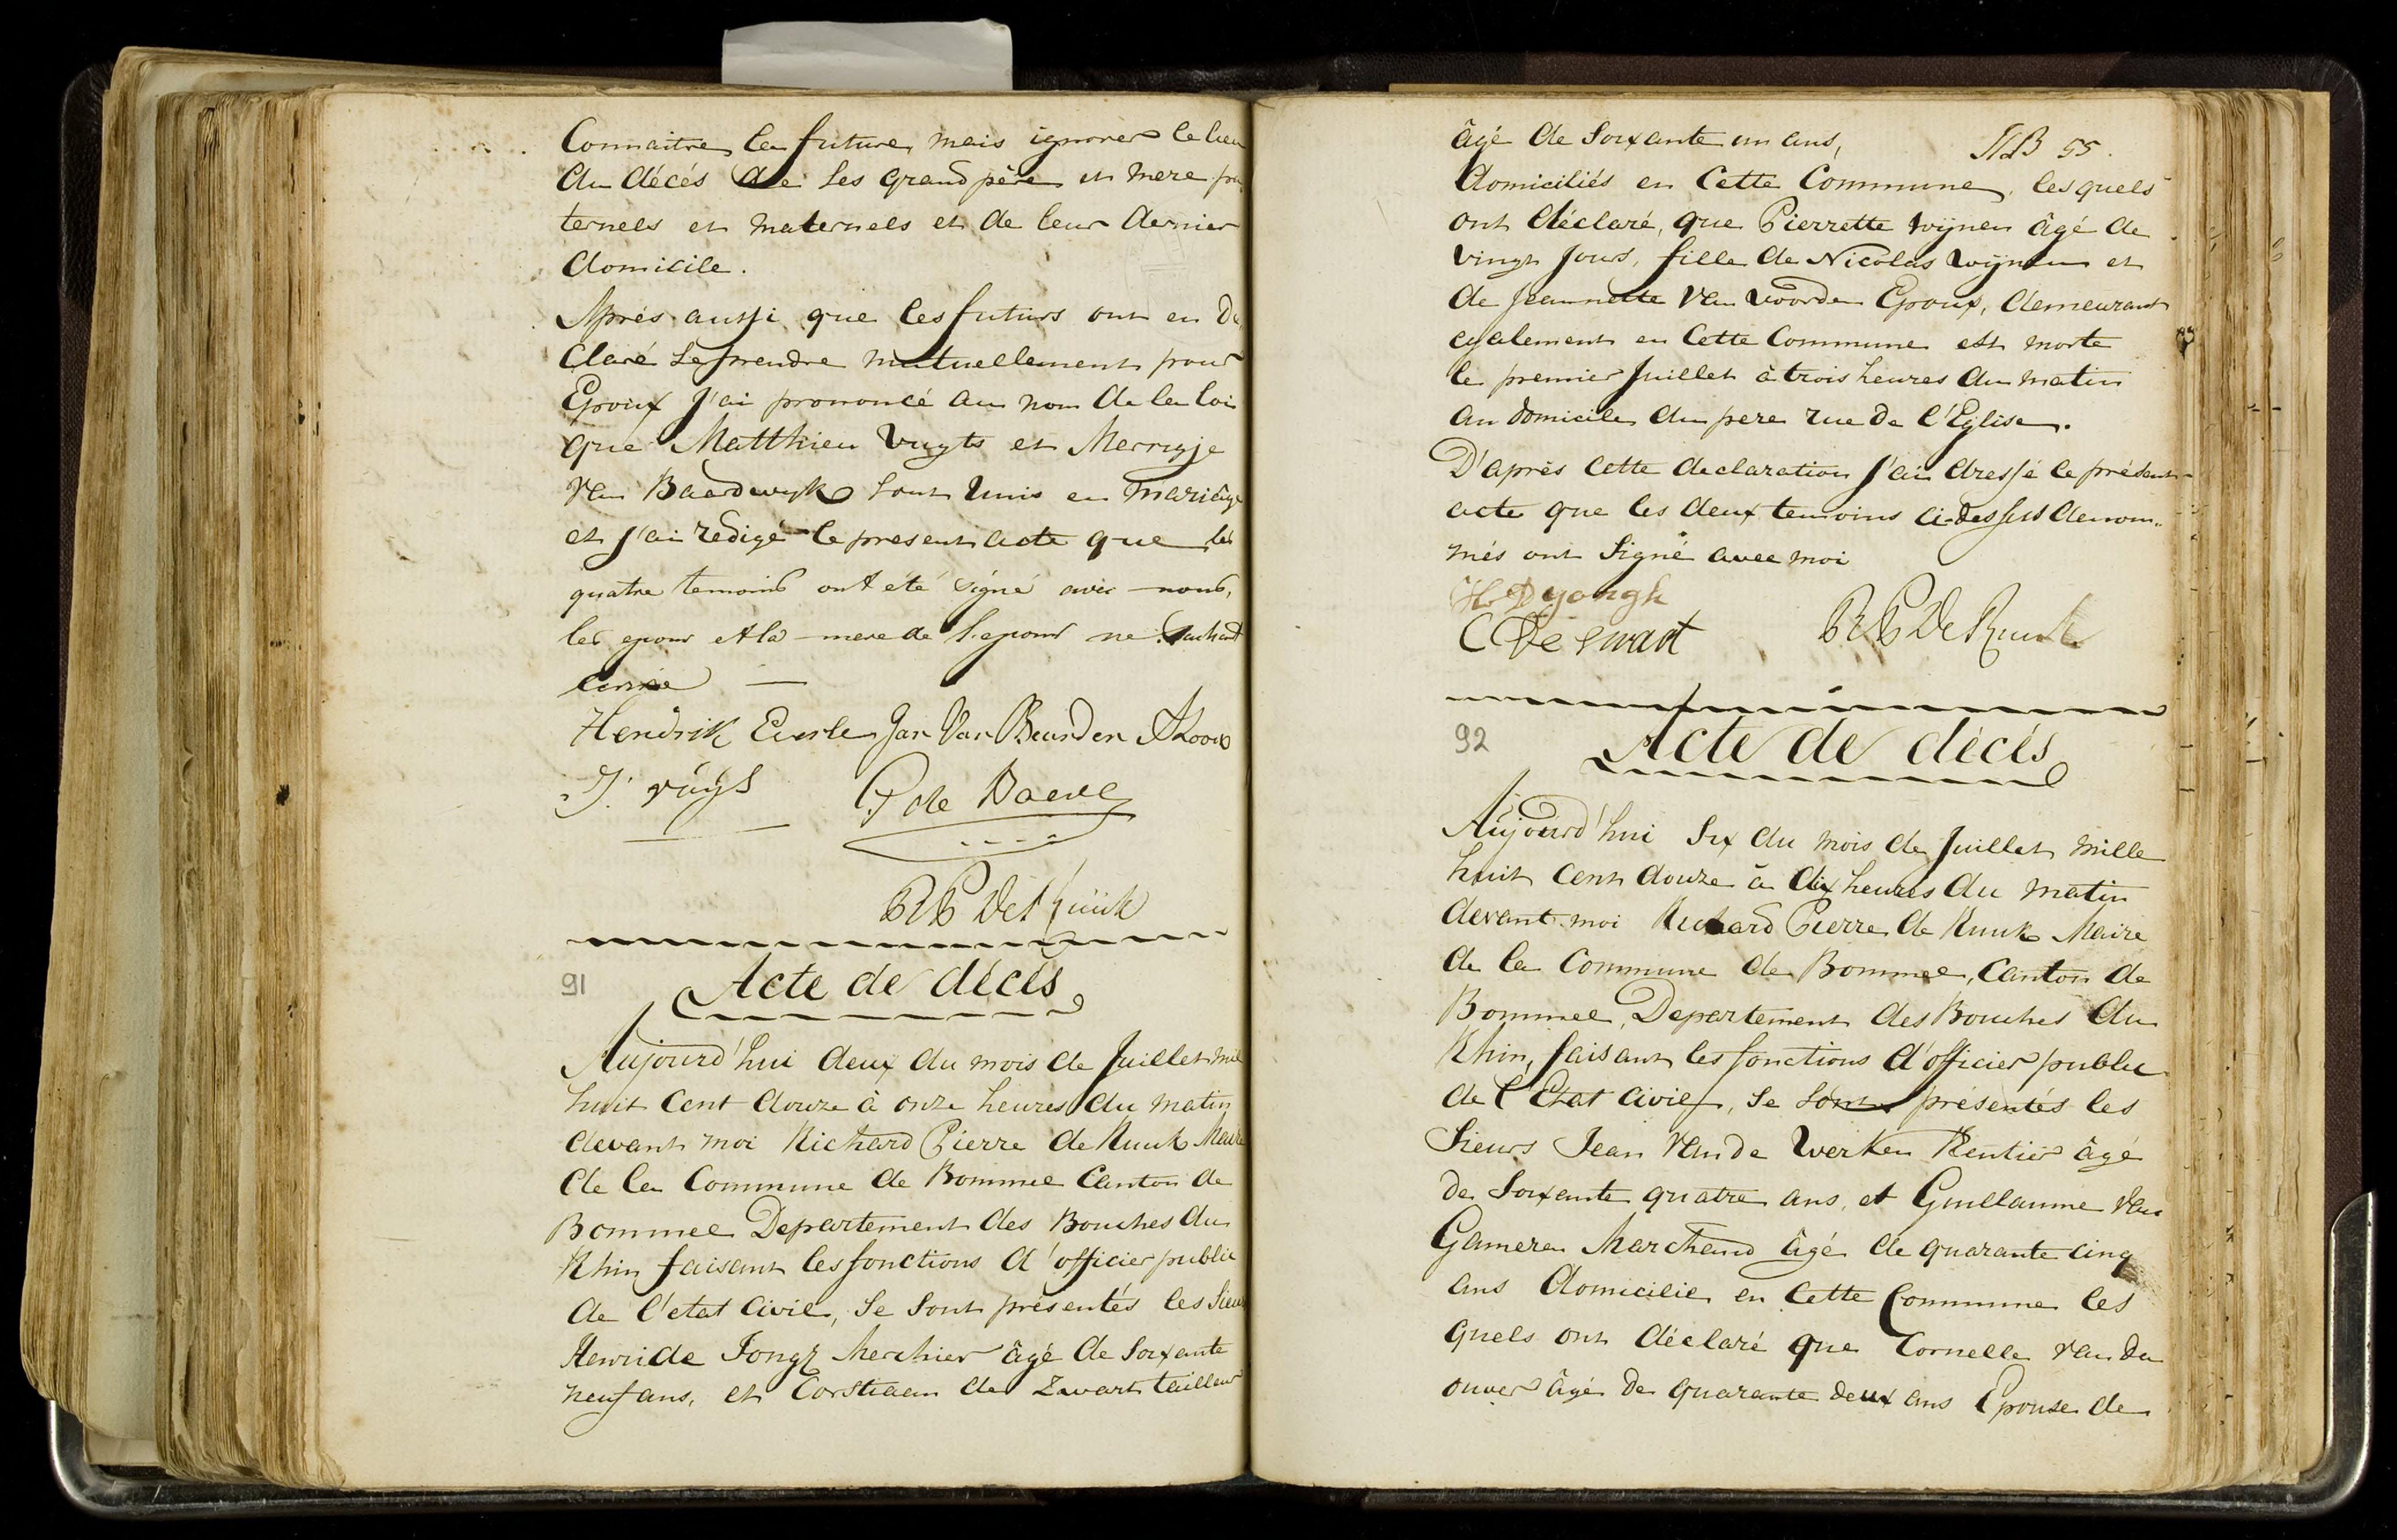 Connaitre la future, mais ignorer le lieu
du décés de ses grand père et mere pa
ternels et maternels et de leur dernier
domicile.
Après aussi que les futurs ont en dé
claré se prendre mutuellement pour
Epoux j'ai prononcé au nom de la loi
que Matthieu Vuyts et Merrigje
Van Baardwyk sont unis en mariage
et j'ai redigé le present acte que les
quatre temoins ont été signé avec nous,
les epoux et la mere de l'epoux ne sachant
ecrire —
Hendrik Everle Jan Van Beurden
J. vuijs G de Baeve
RP De Kuuk
91
Acte de décés
Aujourd'hui deux du mois de Juillet mil
huit Cent douze à onze heures du matin
devant moi Richard Pierre de Kuuk Maire
de la Commune de Bommel Canton de
Bommel Departement des Bouches du
Rhin faisant les fonctions d'officier public
de l'etat Civil, Se Sont présentés les Sieurs
Henri de Jongh âgé de Soixante
neuf ans, et Corstiaan de Zwart tailleur
âgé de Soixante un ans,
NB 55.
domiciliés en Cette Commune, lesquels
ont déclaré, que Pierrette Wijnen âgé de
vingt jours, fille de Nicolas Wijnen et
de Jeannette Van Voorden Epoux, demeurant
egalement en Cette Commune est morte
le premier Juillet à trois heures du matin
au domicile du pere rue de l'Eglise.
D'après Cette declaration j'ai dressé le présent
acte que les deux temoins ci-dessus denom„
més ont Signé avec moi
H D yongh
C De Swart RP De Kuuk
92
Acte de décés
Aujourd'hui Six du mois de Juillet mille
huit Cent douze à dix heures du matin
devant moi Richard Pierre de Kuuk Maire
de la Commune de Bommel, Canton de
Bommel, Departement des Bouches du
Rhin, faisant les fonctions d'officier public
de l'Etat Civil, Se Sont présentés les
Sieurs Jean Van de Werken Rentier âgé
de Soixante quatre ans, et Guillaume Van
Gameren Marchand âgé de quarante cinq
ans domicilié en Cette Commune les
quels ont déclaré que Cornelle Van den
ouver âgé de quarante deux ans Epouse de